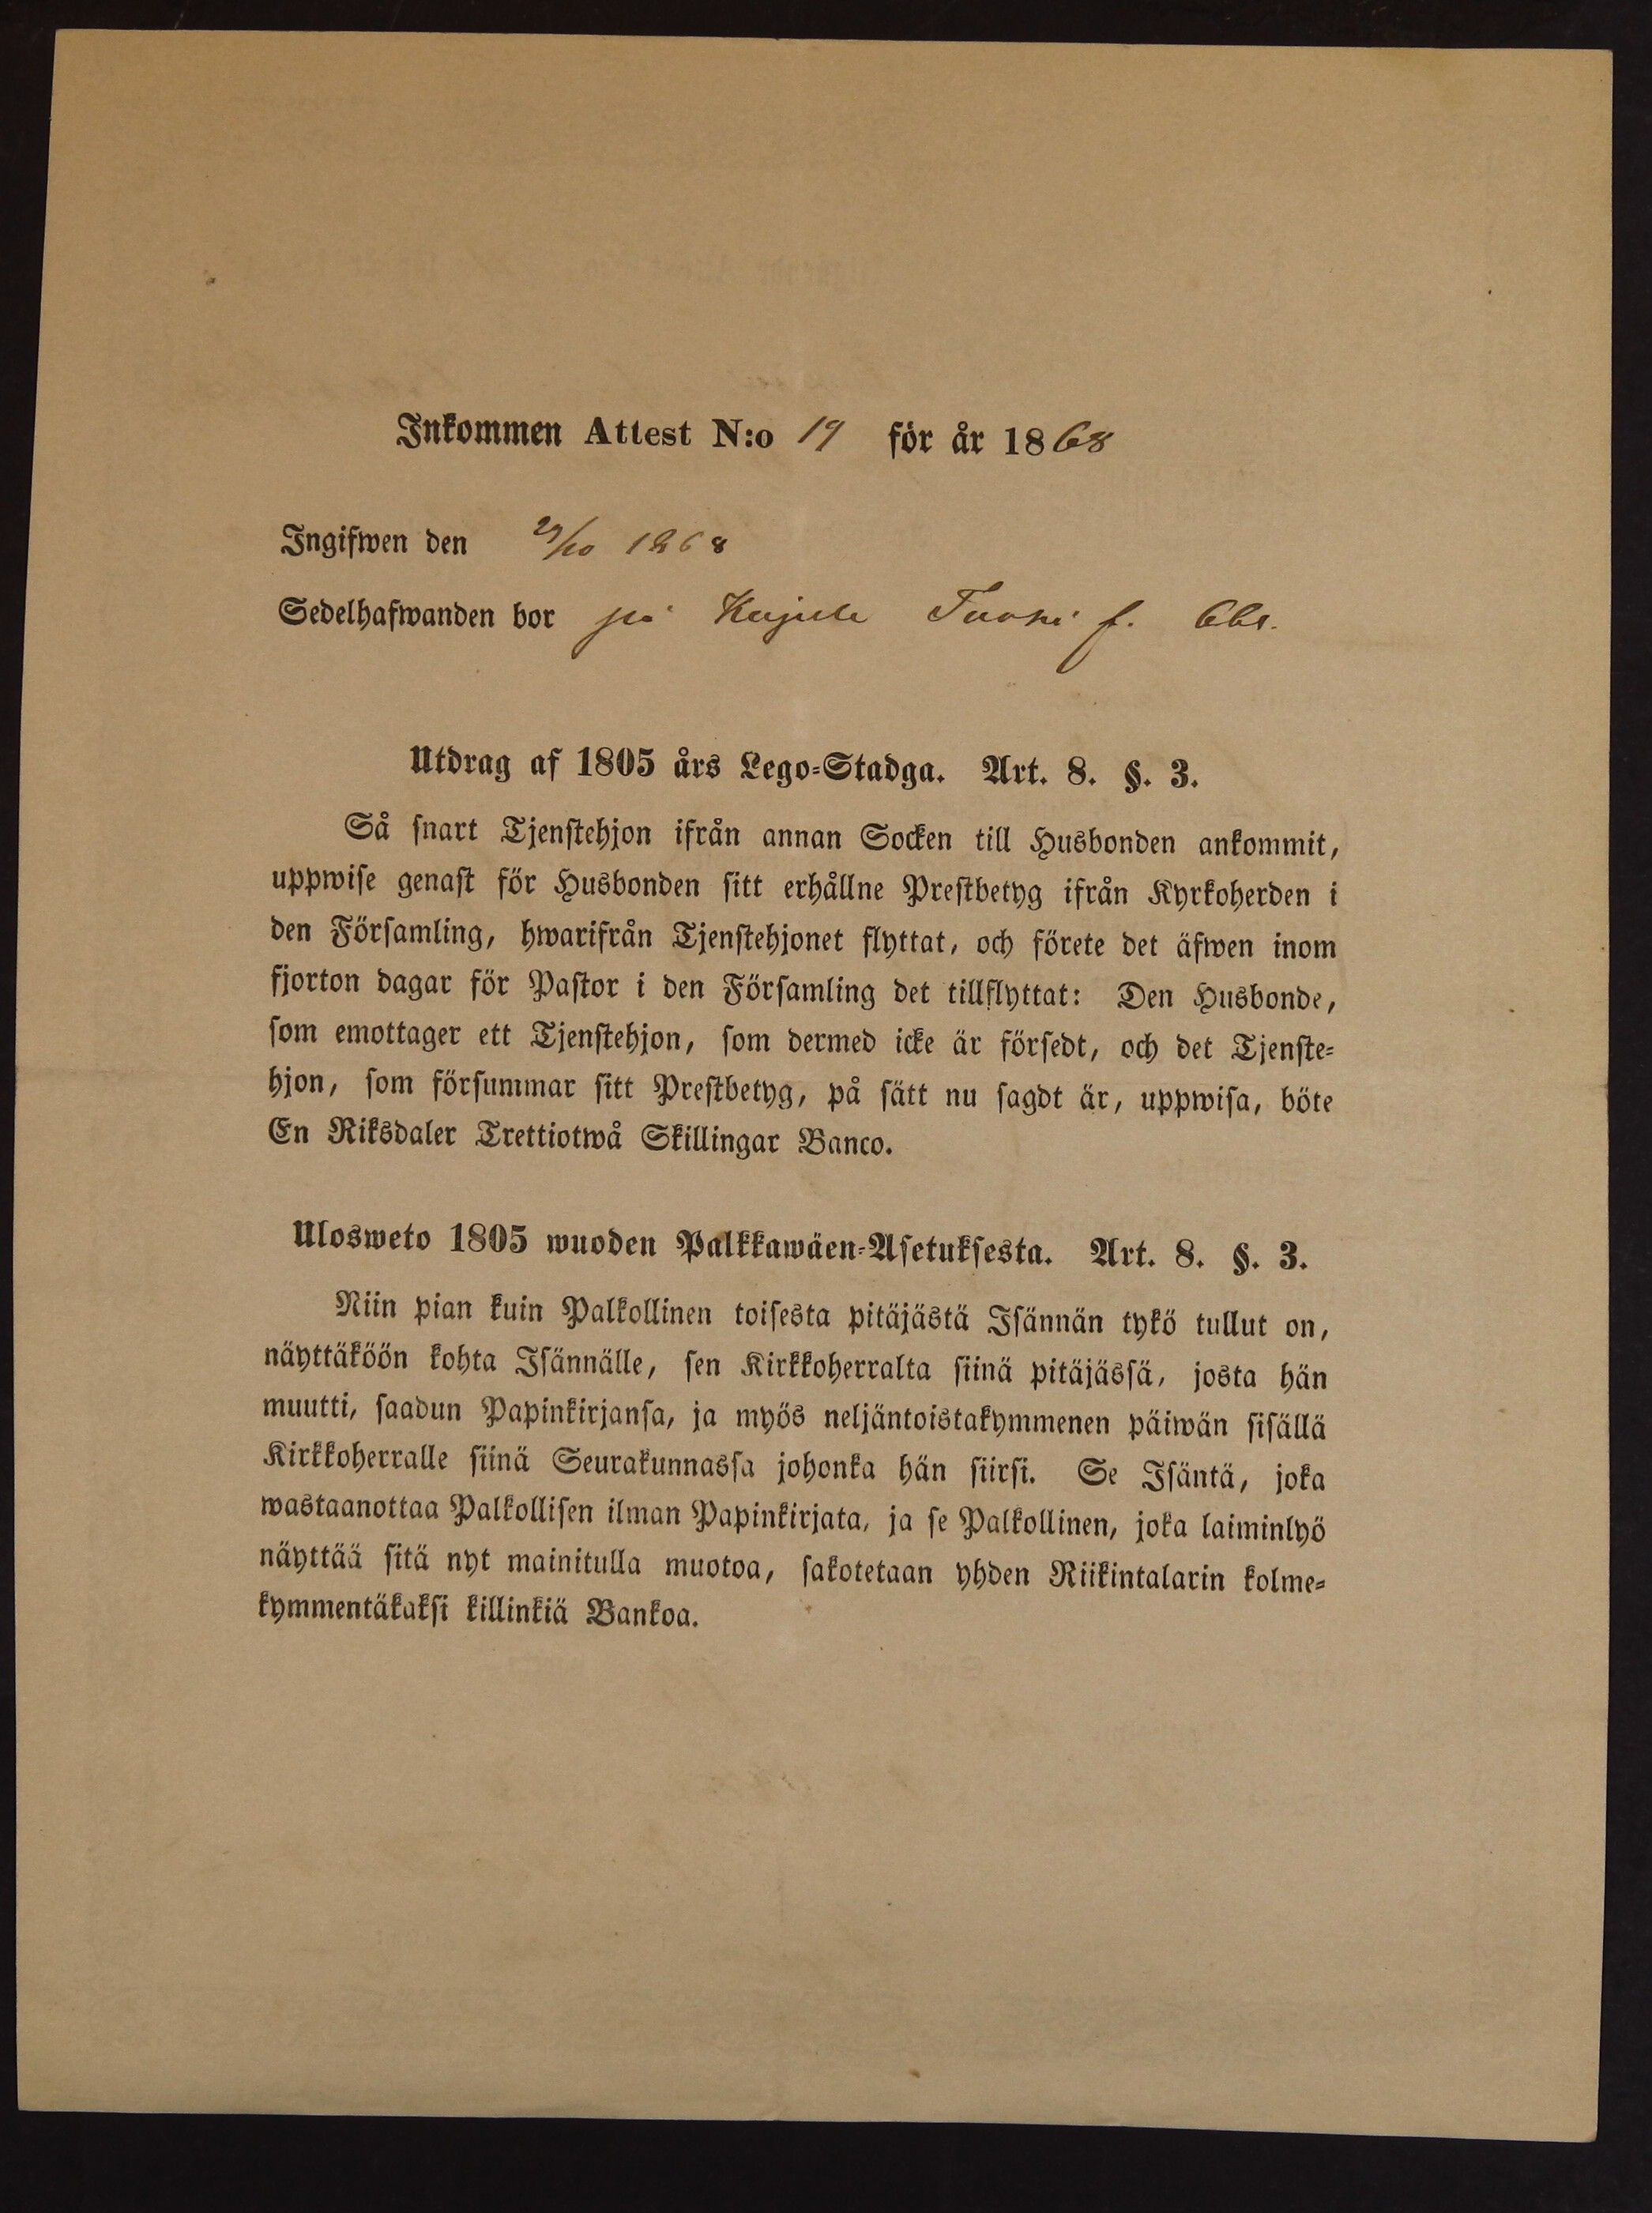 Inkommen Attest N:o 19 för år 1868
Ingifwen den 29/10 1868
Sedelhafwanden bor på Kujula
Utdrag af 1805 års Lego-Stadga. Art. 8. §. 3.
Så snart Tjenstehjon ifrån annan Socken till Husbonden ankommit,
uppwise genast för Husbonden sitt erhållne Prestbetyg ifrån Kyrkoherden i
den Församling, hwarifrån Tjenstehjonet flyttat, och förete det äfwen inom
fjorton dagar för Pastor i den Församling det tillflyttat: Den Husbonde,
som emottager ett Tjenstehjon, som dermed icke är försedt, och det Tjenste-
hjon, som försummar sitt Prestbetyg, på sätt nu sagdt är, uppwisa, böte
En Riksdaler Trettiotwå Skillingar Banco.
Ulosweto 1805 wuoden Palkkawäen-Asetuksesta. Art. 8. §. 3.
Niin pian kuin Palkollinen toisesta pitäjästä Isännän tykö tullut on,
näyttäköön kohta Isännälle, sen Kirkkoherralta siinä pitäjässä, josta hän
muutti, saadun Papinkirjansa, ja myös neljäntoistakymmenen päiwän sisällä
Kirkkoherralle siinä Seurakunnassa johonka hän siirsi. Se Isäntä, joka
wastaanottaa Palkollisen ilman Papinkirjata, ja se Palkollinen, joka laiminlyö
näyttää sitä nyt mainitulla muotoa, sakotetaan yhden Riikintalarin kolme-
kymmentäkaksi killinkiä Bankoa.